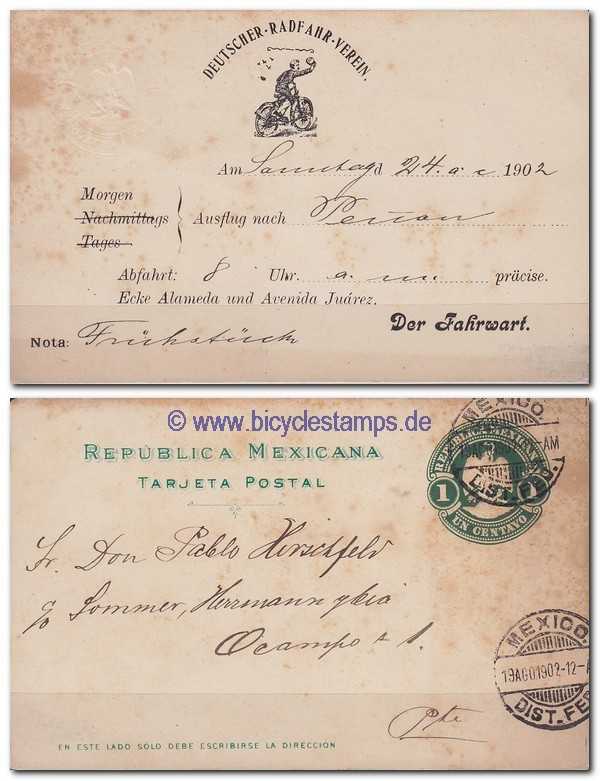 DEUTSCHER-RADFAHR-VEREIN.
Am Sonntag d 24. a. c. 1902
Morgen
Nachmittags
Tages
Ausflug nach Penon
Abfahrt: 8 Uhr a. m. präcise.
Ecke Alameda und Avenida Juárez.
Der Fahrwart.
Nota: Frühstück
© www.bicyclestamps.de
REPÚBLICA MEXICANA
TARJETA POSTAL
REPUBLICA MEXICANA
1 1
UN CENTAVO
MEXICO.
AM
DIST. FED.
Sr. Don Pablo Hirschfeld
c/o Sommer, Herrmann y Cia
Ocampo # 1.
Pte
MEXICO.
19AGO1902-12-A
DIST. FED
EN ESTE LADO SOLO DEBE ESCRIBIRSE LA DIRECCION